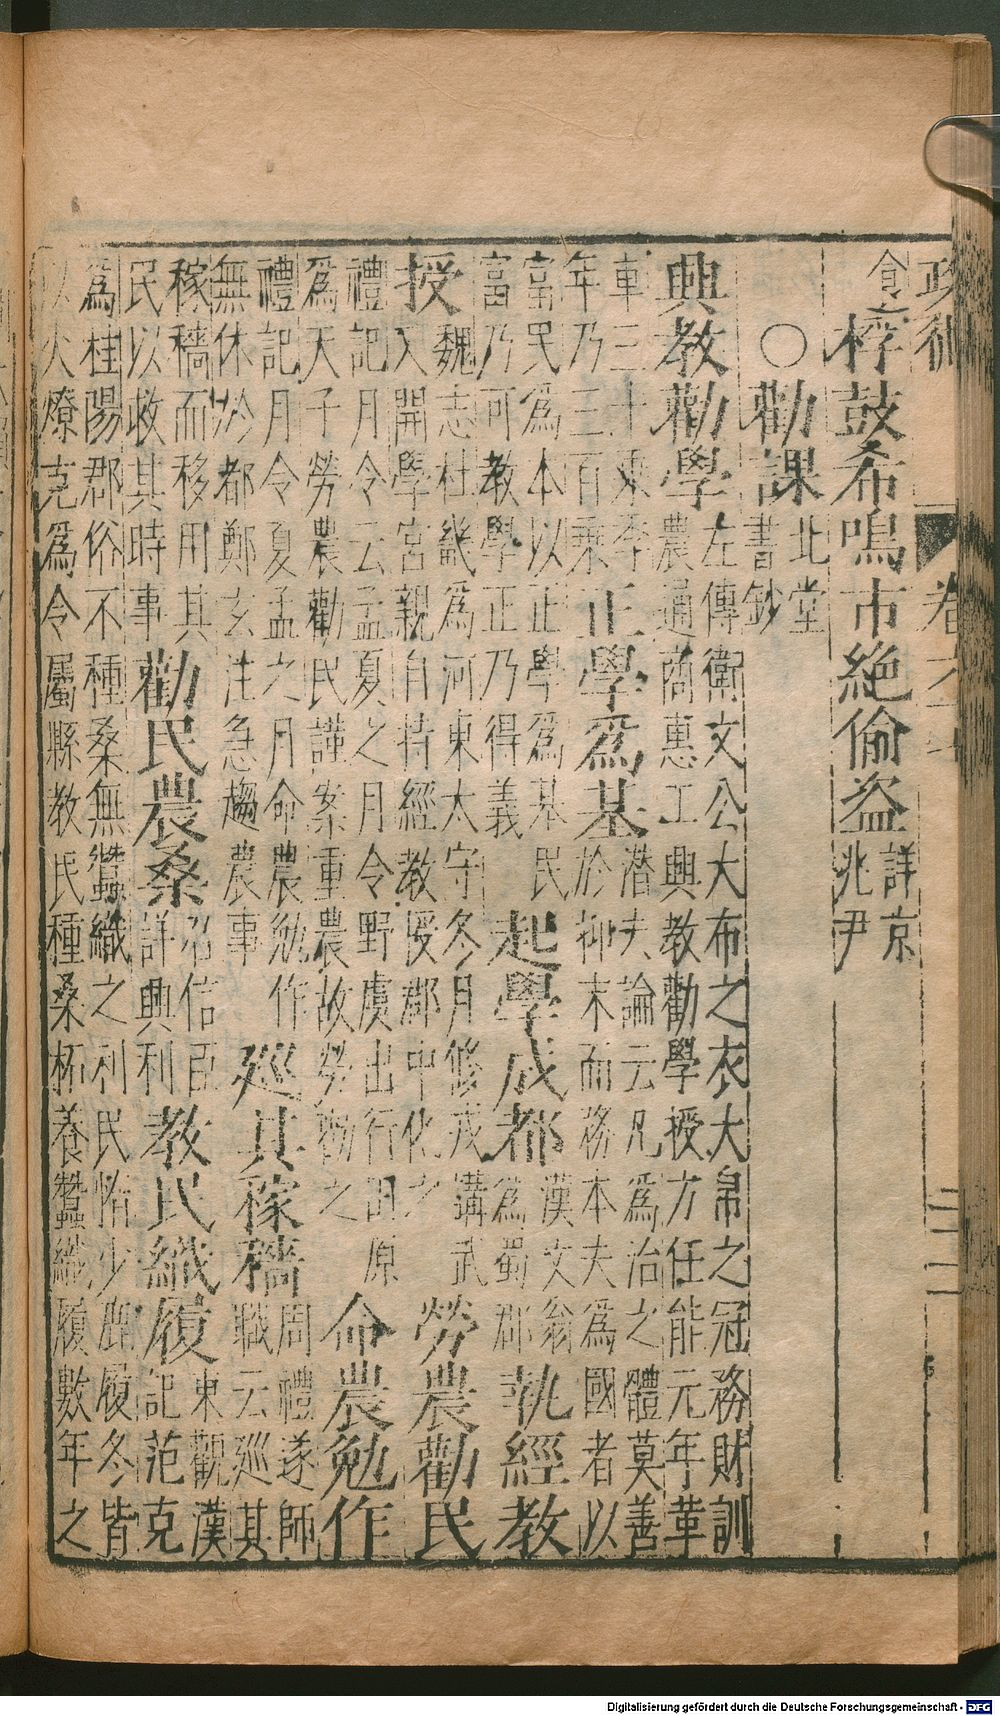 政術
食
桴鼓希鳴市絶偷盗詳京
兆尹
〇勸課北堂
書鈔
興教勸學左傳衛文公大布之衣大帛之冠務財訓
農通商惠工興教勸學授方任能元年革
車三十乘季
年乃三百乘
正學爲基潛夫論云凡爲治之體莫善
於抑末而務本夫爲國者以
富民爲本以正學爲基民
富乃可教學正乃得義
起學成都漢文翁
爲蜀郡
執經教
授魏志杜畿爲河東太守冬月修戎講武
又開學宮親自持經教授郡中化之
勞農勸民
禮記月令云孟夏之月令野虞出行田原
爲天子勞農勸民謹案重農故勞勑之
命農勉作
禮記月令夏孟之月命農勉作
無休於都鄭玄注急趨農事
巡其稼穡周禮遂師
職云巡其
稼穡而移用其
民以救其時事
勸民農桑召信臣
詳興利
教民織履東觀漢
記范克
爲桂陽郡俗不種桑無蠶織之利民惰少麤履冬皆
以火燎克爲令屬縣教民種桑柘養蠶織履數年之
Digitalisierung gefördert durch die Deutsche Forschungsgemeinschaft - DFG